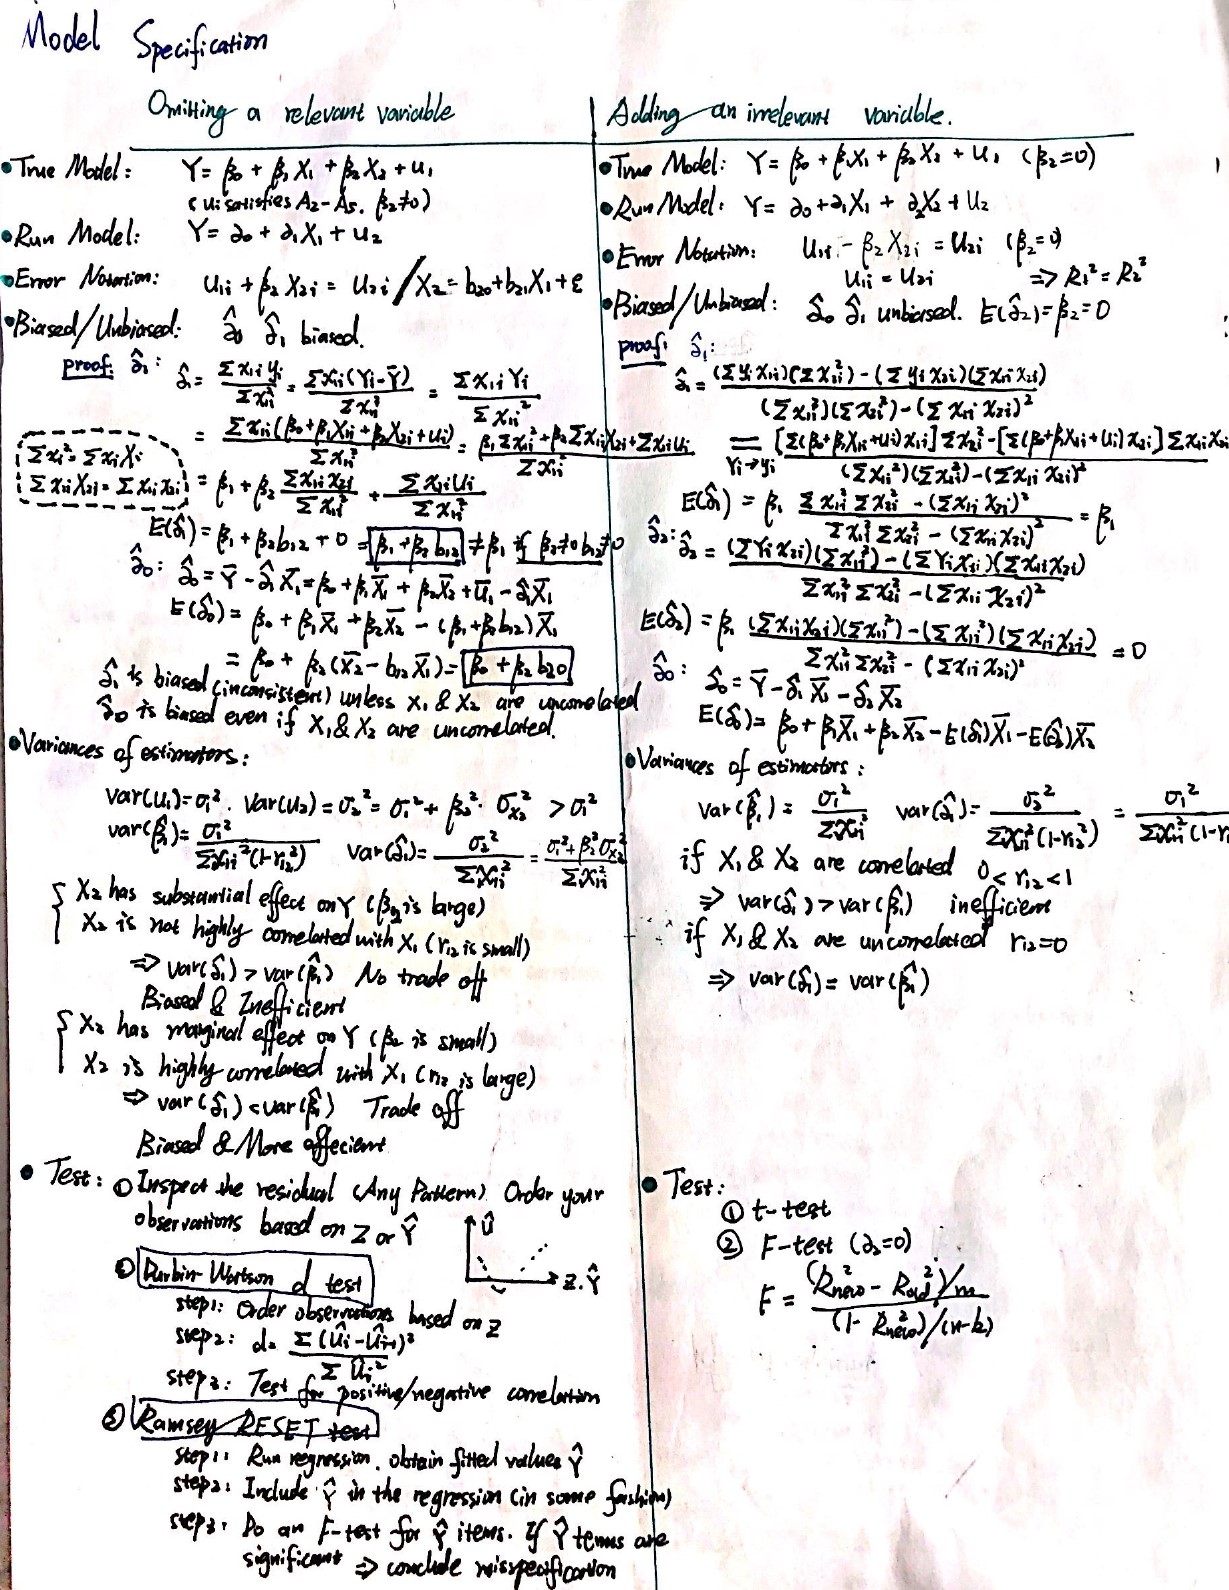 Model Specification
Omitting a relevant variable
• True Model: Y = β₀ + β₁X₁ + β₂X₂ + u₁
(ui satisfies A2-A5. β₂≠0)
• Run Model: Y = ∂₀ + ∂₁X₁ + u₂
• Error Notation: u₁ᵢ + β₂X₂ᵢ = u₂ᵢ / X₂ = b₂₀ + b₂₁X₁ + ε
• Biased/Unbiased: ∂̂₀ ∂̂₁ biased.
proof: ∂̂₁: ∂̂₁ = Σx₁ᵢyᵢ / Σx₁ᵢ² = Σx₁ᵢ(Yᵢ-Ȳ) / Σx₁ᵢ² = Σx₁ᵢYᵢ / Σx₁ᵢ²
= Σx₁ᵢ(β₀+β₁X₁ᵢ+β₂X₂ᵢ+uᵢ) / Σx₁ᵢ² = β₁Σx₁ᵢ²+β₂Σx₁ᵢX₂ᵢ+Σx₁ᵢuᵢ / Σx₁ᵢ²
Σxᵢ² = ΣxᵢXᵢ
Σx₁ᵢX₂ᵢ = Σx₁ᵢx₂ᵢ
= β₁ + β₂ Σx₁ᵢx₂ᵢ / Σx₁ᵢ² + Σx₁ᵢuᵢ / Σx₁ᵢ²
E(∂̂₁) = β₁ + β₂b₁₂ + 0 = β₁ + β₂b₁₂ ≠ β₁ if β₂≠0 b₁₂≠0
∂̂₀: ∂̂₀ = Ȳ - ∂̂₁X̄₁ = β₀ + β₁X̄₁ + β₂X̄₂ + ū₁ - ∂̂₁X̄₁
E(∂̂₀) = β₀ + β₁X̄₁ + β₂X̄₂ - (β₁+β₂b₁₂)X̄₁
= β₀ + β₂(X̄₂ - b₁₂X̄₁) = β₀ + β₂b₂₀
∂̂₁ is biased (inconsistent) unless X₁ & X₂ are uncorrelated
∂̂₀ is biased even if X₁ & X₂ are uncorrelated.
• Variances of estimators:
var(u₁) = σ₁². Var(u₂) = σ₂² = σ₁² + β₂²·σ_X₂² > σ₁²
var(β̂₁) = σ₁² / Σx₁ᵢ²(1-r₁₂²) Var(∂̂₁) = σ₂² / Σx₁ᵢ² = σ₁²+β₂²σ_X₂² / Σx₁ᵢ²
{ X₂ has substantial effect on Y (β₂ is large)
X₂ is not highly correlated with X₁ (r₁₂ is small)
⇒ var(∂̂₁) > var(β̂₁) No trade off
Biased & Inefficient
{ X₂ has marginal effect on Y (β₂ is small)
X₂ is highly correlated with X₁ (r₁₂ is large)
⇒ var(∂̂₁) < var(β̂₁) Trade off
Biased & More effecient
• Test: ① Inspect the residual (Any Pattern). Order your
observations based on Z or Ŷ
Û
Z. Ŷ
② Durbin-Watson d test
step1: Order observations based on Z
step2: d = Σ(ûᵢ-ûᵢ₋₁)² / Σûᵢ²
step3: Test for positive/negative correlation
③ Ramsey RESET test
step1: Run regression. obtain fitted values Ŷ
step2: Include Ŷ in the regression (in some fashion)
step3: Do an F-test for Ŷ items. If Ŷ terms are
significant ⇒ conclude misspecification
Adding an irrelevant variable.
• True Model: Y = β₀ + β₁X₁ + β₂X₂ + u₁ (β₂=0)
• Run Model: Y = ∂₀ + ∂₁X₁ + ∂₂X₂ + u₂
• Error Notation: u₁ᵢ - β₂X₂ᵢ = u₂ᵢ (β₂=0)
u₁ᵢ = u₂ᵢ ⇒ R₁² = R₂²
• Biased/Unbiased: ∂̂₀ ∂̂₁ unbiased. E(∂̂₂) = β₂ = 0
proof: ∂̂₁:
∂̂₁ = (Σyᵢx₁ᵢ)(Σx₂ᵢ²) - (Σyᵢx₂ᵢ)(Σx₁ᵢx₂ᵢ) / (Σx₁ᵢ²)(Σx₂ᵢ²) - (Σx₁ᵢx₂ᵢ)²
= Yᵢ→yᵢ [Σ(β₀+β₁X₁ᵢ+uᵢ)x₁ᵢ]Σx₂ᵢ² - [Σ(β₀+β₁X₁ᵢ+uᵢ)x₂ᵢ]Σx₁ᵢx₂ᵢ / (Σx₁ᵢ²)(Σx₂ᵢ²) - (Σx₁ᵢx₂ᵢ)²
E(∂̂₁) = β₁ Σx₁ᵢ²Σx₂ᵢ² - (Σx₁ᵢx₂ᵢ)² / Σx₁ᵢ²Σx₂ᵢ² - (Σx₁ᵢx₂ᵢ)² = β₁
∂̂₂: ∂̂₂ = (ΣYᵢx₂ᵢ)(Σx₁ᵢ²) - (ΣYᵢx₁ᵢ)(Σx₁ᵢx₂ᵢ) / Σx₁ᵢ²Σx₂ᵢ² - (Σx₁ᵢx₂ᵢ)²
E(∂̂₂) = β₁ (Σx₁ᵢx₂ᵢ)(Σx₁ᵢ²) - (Σx₁ᵢ²)(Σx₁ᵢx₂ᵢ) / Σx₁ᵢ²Σx₂ᵢ² - (Σx₁ᵢx₂ᵢ)² = 0
∂̂₀: ∂̂₀ = Ȳ - ∂̂₁X̄₁ - ∂̂₂X̄₂
E(∂̂₀) = β₀ + β₁X̄₁ + β₂X̄₂ - E(∂̂₁)X̄₁ - E(∂̂₂)X̄₂
• Variances of estimators:
var(β̂₁) = σ₁² / Σx₁ᵢ² var(∂̂₁) = σ₂² / Σx₁ᵢ²(1-r₁₂²) = σ₁² / Σx₁ᵢ²(1-r₁
if X₁ & X₂ are correlated 0 < r₁₂ < 1
⇒ var(∂̂₁) > var(β̂₁) inefficient
if X₁ & X₂ are uncorrelated r₁₂=0
⇒ var(∂̂₁) = var(β̂₁)
• Test:
① t-test
② F-test (∂₂=0)
F = (R²new - R²old)/m / (1-R²new)/(n-k)